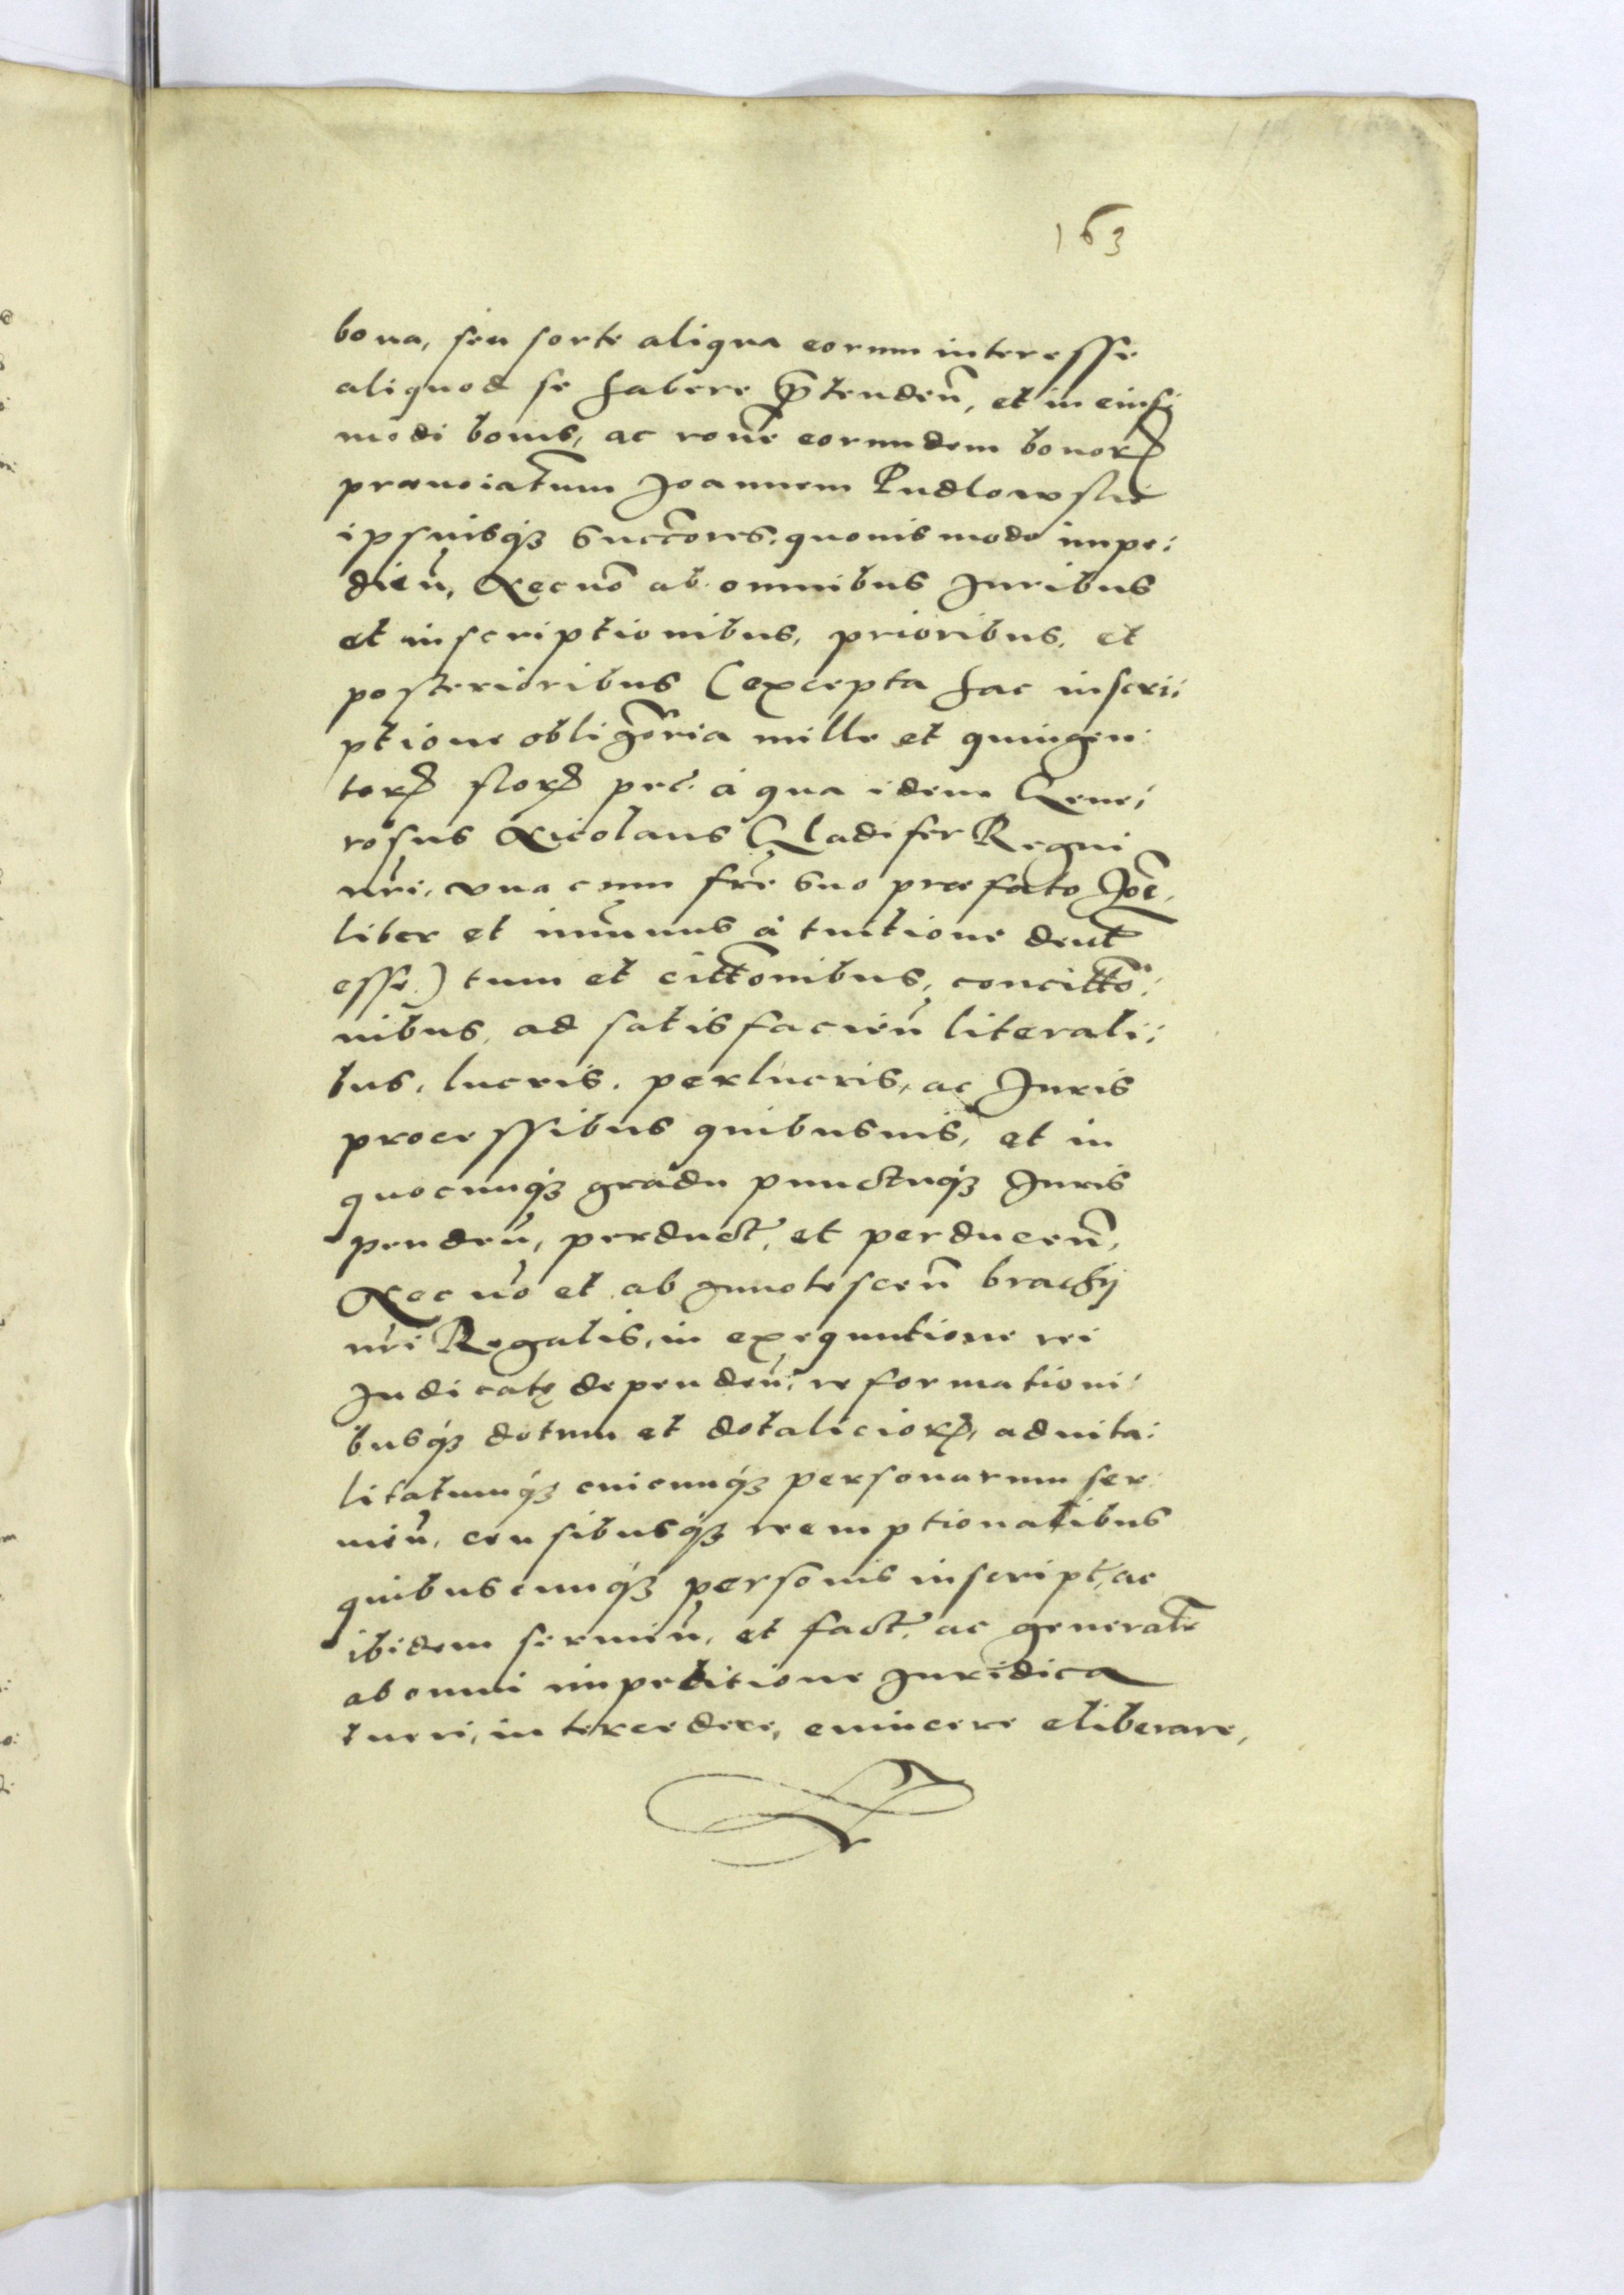 163
bona, seu sorte aliqua eorum interesse
aliquod se habere p̃tendeñ, et in eiusſ;
modi bonis, ac roñe eorundem bonorꝝ
prænoiat̃um Joannem Pudlowskie
ipsiusq́ꝫ Succ̃ores, quouis modo impe:
dieñ, Necnõ ab omnibus Juribus
et inscriptionibus, prioribus, et
posterioribus (excepta hac inscri:
ptione oblig̃oria mille et quingen:
torꝝ florꝝ pec̃. à qua idem Gene:
rosus Nicolaus Gladifer Regni
nr̃i, vna cum fr̃e suo præfato Joẽ,
liber et im̃unis à tuitione deb̃t
esse) tum et citt̃onibus, concitt̃o:
nibus, ad satisfacieñ literali:
bus, lucris, perlucris, ac Juris
processibus quibusuis, et in
quocunq́ꝫ gradu punctuq́ꝫ Juris
pendeñ, perduct̃, et perduceñ,
Necnõ et ab innotesceñ brachij
nr̃i Regalis, in exequutione rei
Iudicatę dependeñ, reformationi:
busq́ꝫ dotum et dotaliciorꝝ, aduita:
litatumq́ꝫ cuicunq́ꝫ personarum ser:
uieñ, censibusq́ꝫ reemptionalibus
quibuscunq́ꝫ personis inscript̃, ac
ibidem seruieñ, et fact̃, ac generalr̃
ab omni impeditione Juridica
tueri, intercedere, euincere eliberare,